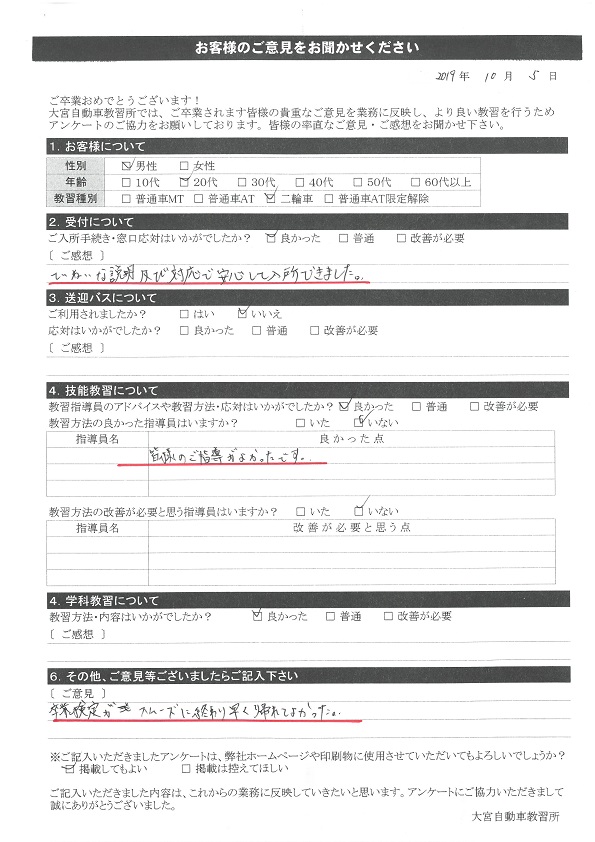 お客様のご意見をお聞かせください
2019年 10月 5日
ご卒業おめでとうございます！
大宮自動車教習所では、ご卒業されます皆様の貴重なご意見を業務に反映し、より良い教習を行うため
アンケートのご協力をお願いしております。皆様の率直なご意見・ご感想をお聞かせ下さい。
1. お客様について
性別 ☑男性 □女性
年齢 □10代 ☑20代 □30代 □40代 □50代 □60代以上
教習種別 □普通車MT □普通車AT ☑二輪車 □普通車AT限定解除
2. 受付について
ご入所手続き・窓口応対はいかがでしたか？ ☑良かった □普通 □改善が必要
〔 ご感想 〕
ていねいな説明及び対応で安心して入所できました。
3. 送迎バスについて
ご利用されましたか？ □はい ☑いいえ
応対はいかがでしたか？ □良かった □普通 □改善が必要
〔 ご感想 〕
4. 技能教習について
教習指導員のアドバイスや教習方法・応対はいかがでしたか？ ☑良かった □普通 □改善が必要
教習方法の良かった指導員はいますか？ □いた ☑いない
指導員名 良かった点
皆様のご指導がよかったです。
教習方法の改善が必要と思う指導員はいますか？ □いた ☑いない
指導員名 改善が必要と思う点
4. 学科教習について
教習方法・内容はいかがでしたか？ ☑良かった □普通 □改善が必要
〔 ご感想 〕
6. その他、ご意見等ございましたらご記入下さい
〔 ご意見 〕
卒業検定が スムーズに終わり早く帰れてよかった。
※ご記入いただきましたアンケートは、弊社ホームページや印刷物に使用させていただいてもよろしいでしょうか？
☑掲載してもよい □掲載は控えてほしい
ご記入いただきました内容は、これからの業務に反映していきたいと思います。アンケートにご協力いただきまして
誠にありがとうございました。
大宮自動車教習所